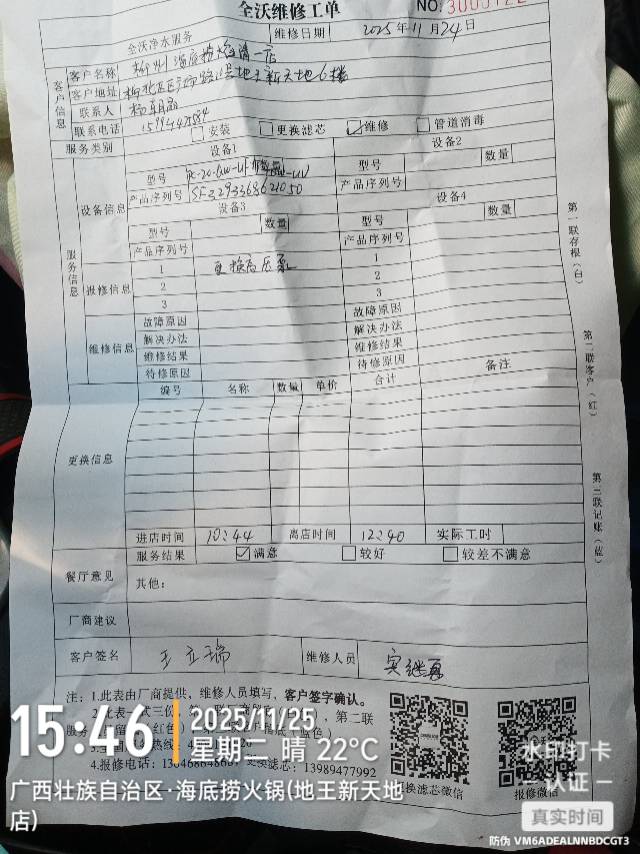 全沃维修工单
NO.
全沃净水服务 维修日期 2025年11月24日
客户信息
客户名称 柳州 海底捞火锅 一店
客户地址 地王新天地6楼
联系人
联系电话
服务类别 安装 更换滤芯 维修 管道消毒
服务信息
设备信息 设备1 设备2
型号 型号 数量
产品序列号 SF3293368621050 产品序列号
设备3 设备4
型号 数量 型号 数量
产品序列号 产品序列号
报修信息 1 更换高压泵 1
2 2
3 3
维修信息 故障原因 故障原因
解决办法 解决办法
维修结果 维修结果
待修原因 待修原因
更换信息 编号 名称 数量 单价 合计 备注
进店时间 10:44 离店时间 12:40 实际工时
餐厅意见 服务结果 满意 较好 较差不满意
其他:
厂商建议
客户签名 王立瑞 维修人员
第一联存根(白)
第二联客户(红)
第三联记账(蓝)
注:1.此表由厂商提供,维修人员填写,客户签字确认。
4.报修电话: 更换滤芯:13989477992
更换滤芯微信 报修微信
15:46
2025/11/25
星期二 晴 22°C
广西壮族自治区·海底捞火锅(地王新天地店)
水印打卡
认证
真实时间
防伪 VM6ADEALNNBDCGT3